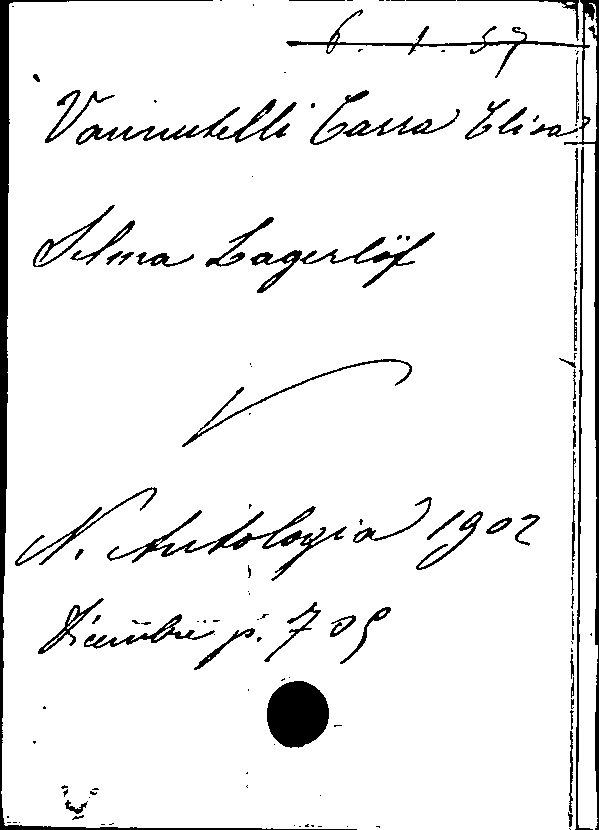 6. 1. 57
Vannutelli Carra Elisa
Selma Lagerlöf
N. Antologia 1902
Dicembre p. 709